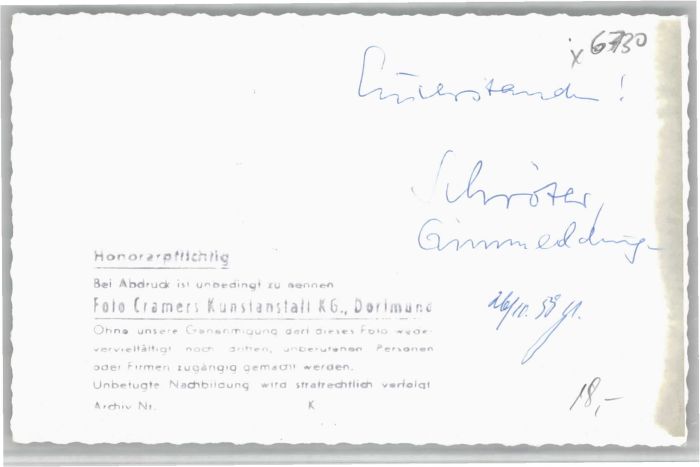 x 6730
Einverstanden!
Schröter,
Gimmeldingen
18,-
Honorarpflichtig
Bei Abdruck ist unbedingt zu nennen
Foto Cramers Kunstanstalt KG., Dortmund
Ohne unsere Genehmigung darf dieses Foto weder
vervielfältigt noch dritten, unberufenen Personen
oder Firmen zugängig gemacht werden.
Unbefugte Nachbildung wird strafrechtlich verfolgt
Archiv Nr. K